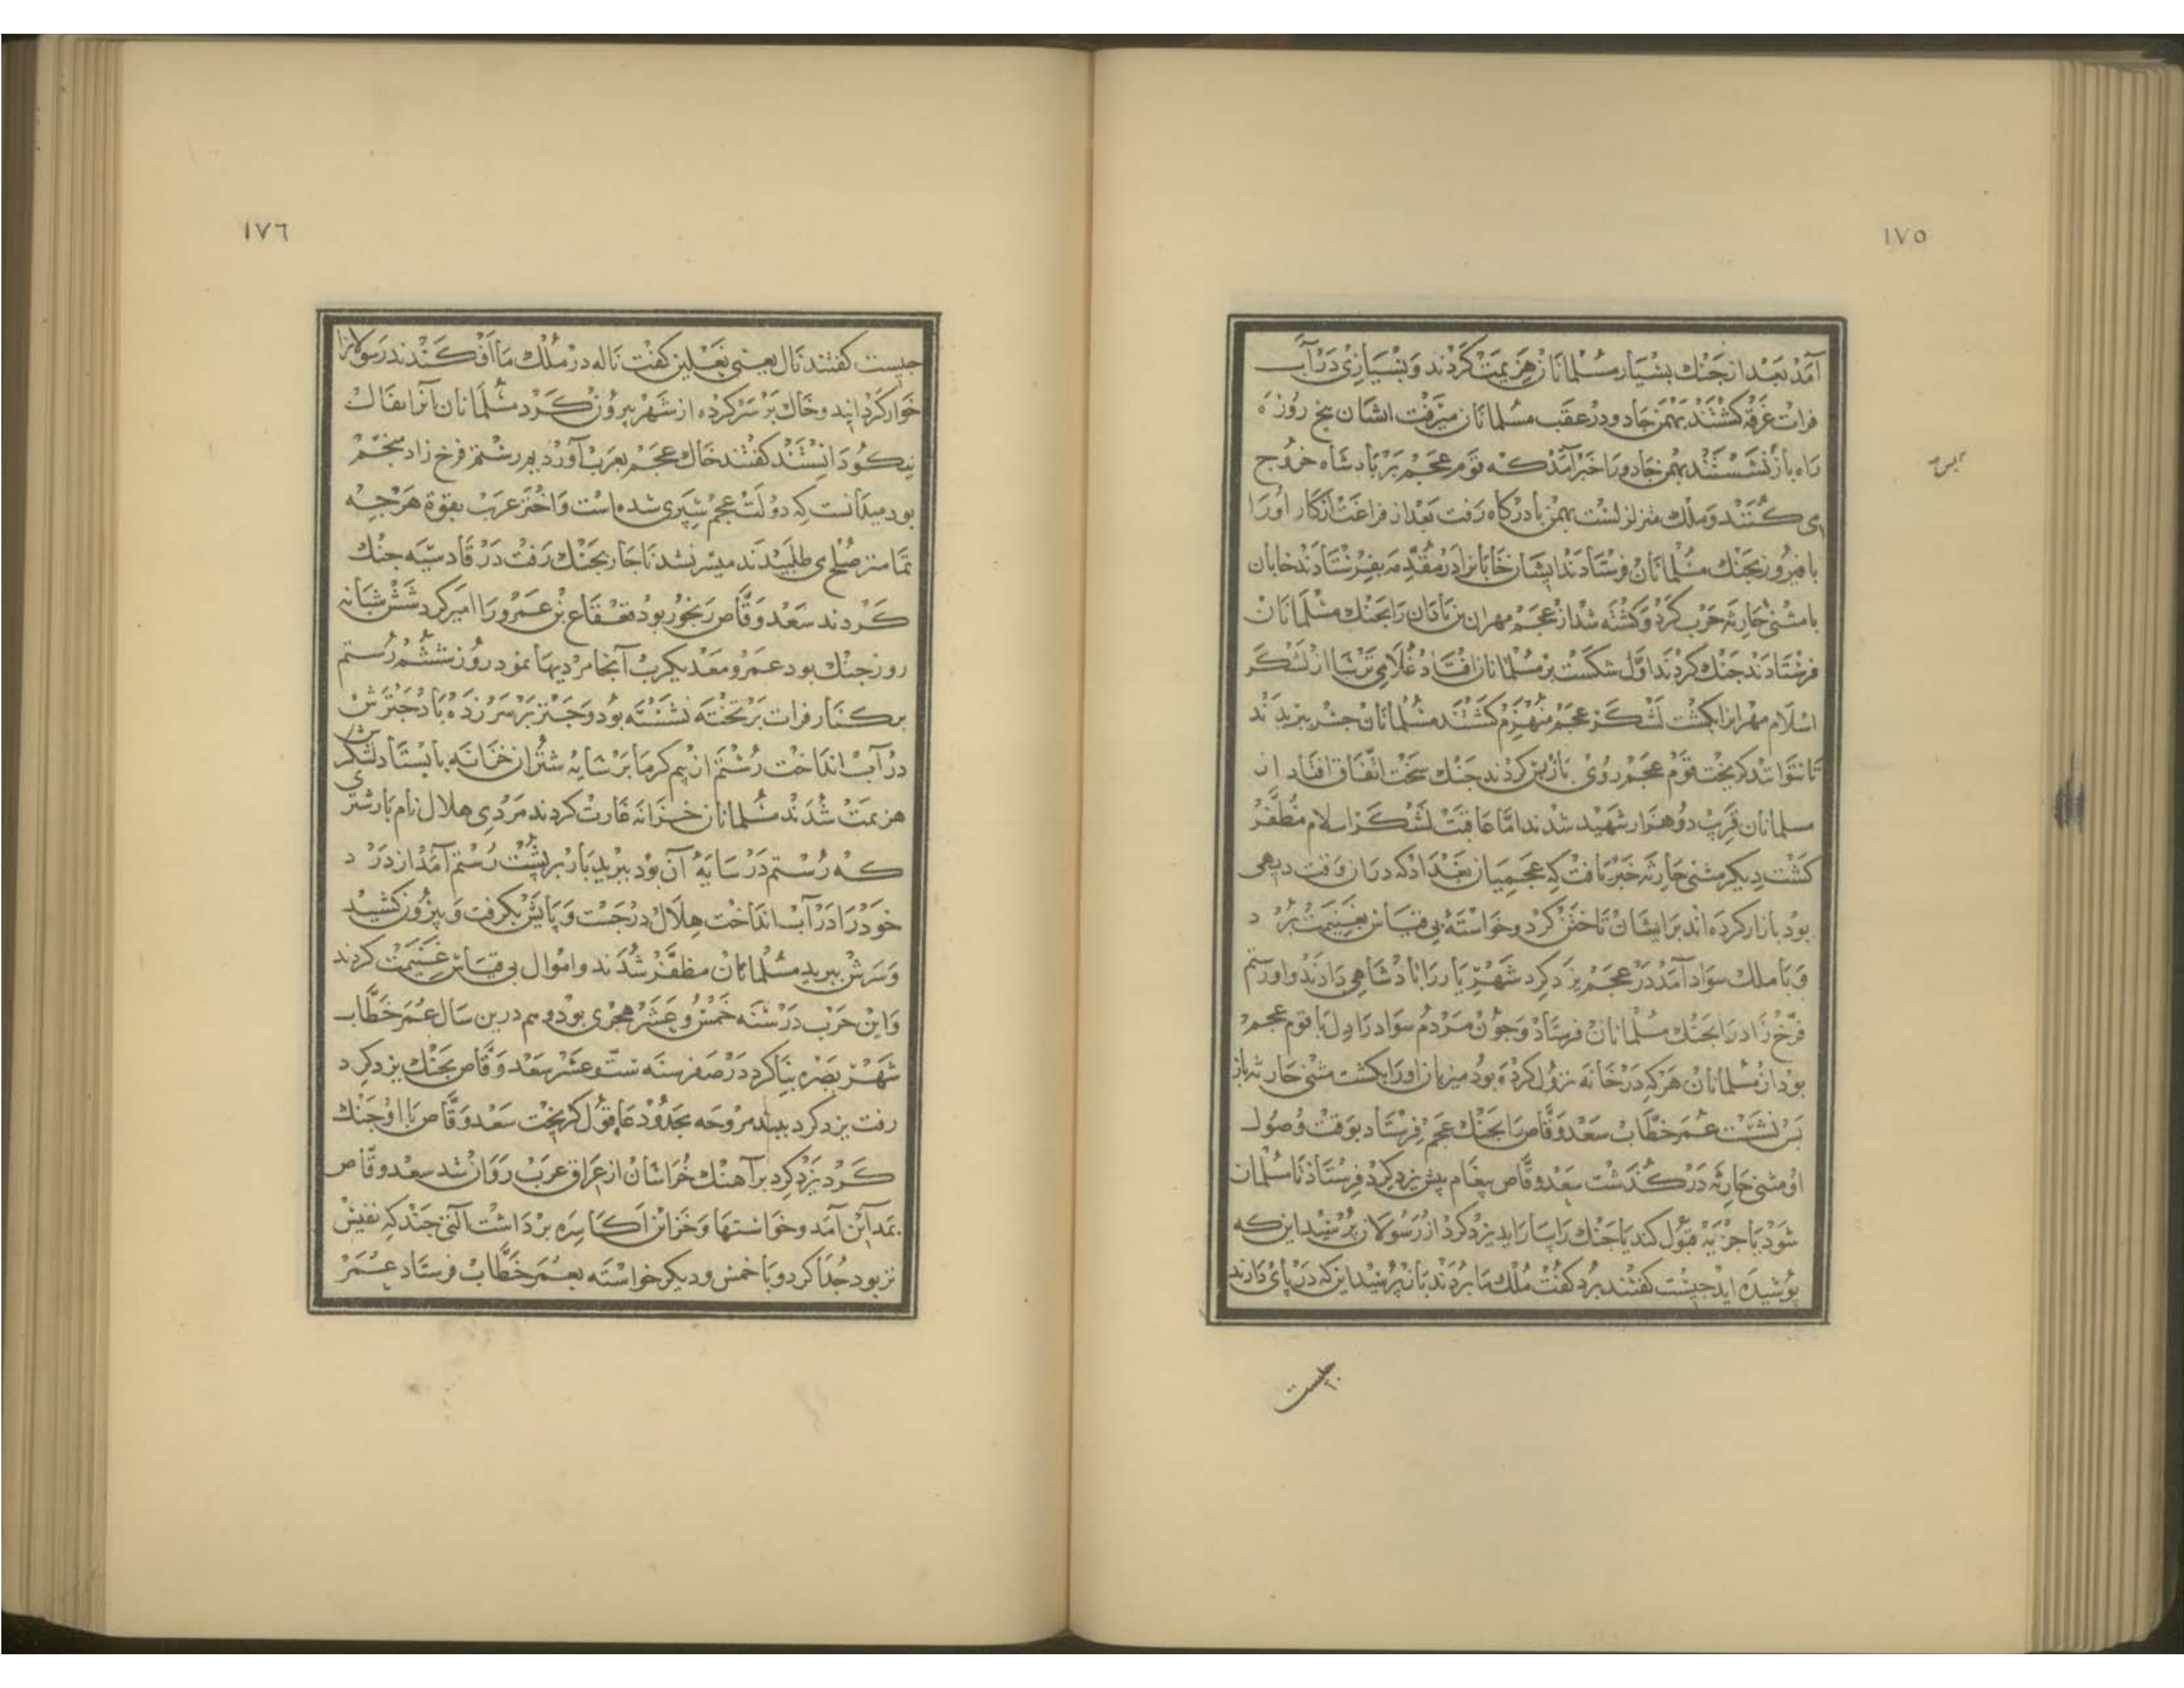 ١٧٥
آمد بعد از جنك بسیار مسلمانان هزیمت کردند و بسیاری در آب
فرات غرقه کشتند بهمن جادو در عقب مسلمانان میرفت ایشان پنج روزه
راه باز نشستند بهمن جادو را خبر آمد که قوم عجم بر پادشاه خروج
می کنند و ملك متزلزلست بهمن با درکاه رفت بعد از فراغت از کار او را
با فیروز بجنك مسلمانان فرستادند ایشان خابانرا در مقدمه بفرستادند خابان
با مثنی حارثه حرب کرد و کشته شد از عجم مهران بن باذان را بجنك مسلمانان
فرستادند جنك کردند اول شکست بر مسلمانان افتاد غلامی ترسا از لشکر
اسلام مهرانرا بکشت لشکر عجم منهزم کشتند مسلمانان جسر ببریدند
تا نتوانند کریخت قوم عجم روی باز پس کردند جنك سخت اتفاق افتاد از
مسلمانان قریب دو هزار شهید شدند اما عاقبت لشکر اسلام مظفر
کشت دیکر مثنی حارثه خبر یافت که عجمیان بغداد که در ان وقت دیهی
بود بازار کرده اند بر ایشان تاختن کرد و خواسته بی قیاس بغنیمت برد
و با ملك سواد آمد در عجم یزدکرد شهریار را پادشاهی دادند و او رستم
فرخ زاد را بجنك مسلمانان فرستاد و چون مردم سواد را دل با قوم عجم
بود از مسلمانان هر که در خانه نزول کرده بود میزبان او را بکشت مثنی حارثه باز
پس نشست عمر خطاب سعد وقاص را بجنك عجم فرستاد بوقت وصول
او مثنی حارثه در کذشت سعد وقاص پیغام پیش یزدکرد فرستاد تا مسلمان
شود یا جزیه قبول کند یا جنك را بسازاید یزدکرد از رسولان پرسید این که
پوشیده اید چیست کفتند برد کفت ملك ما بردند باز پرسید این که در پای دارند
چیست
١٧٦
چیست کفتند نال یعنی نعلین کفت ناله در ملك ما افکندند رسولانرا
خوار کردانید و خاك بر سر کرده از شهر بیرون کرد مسلمانان آنرا بفال
نیکو دانستند کفتند خاك عجم بعرب آوردیم رستم فرخ زاد منجم
بود میدانست که دولت عجم سپری شده است و اختر عرب بقوة هر چه
تمامتر صلح می طلبیدند میسر نشد ناچار بجنك رفت در قادسیه جنك
کردند سعد وقاص رنجور بود قعقاع بن عمرو را امیر کرد شش شبانه
روز جنك بود عمرو معد یکرب آنجا مردیها نمود روز ششم رستم
بر کنار فرات بر تخته نشسته بود و چتر بر سر زده باد چترش
در آب انداخت رستم از بیم کرما بر سایه شتران خزانه بایستاد لشکرش
هزیمت شدند مسلمانان خزانه غارت کردند مردی هلال نام بار شتری
که رستم در سایه آن بود ببرید بار بر پشت رستم آمد از درد
خود را در آب انداخت هلال در جست و پایش بکرفت و بیرون کشید
و سرش ببرید مسلمانان مظفر شدند و اموال بی قیاس غنیمت کردند
و این حرب در سنه خمس و عشر هجری بود و هم درین سال عمر خطاب
شهر بصره بنا کرد در صفر سنه ست و عشر سعد وقاص بجنك یزدکرد
رفت یزدکرد مروحه بحدود عاقول کریخت سعد وقاص با او جنك
کرد یزدکرد بر آهنك خراسان از عراق عرب روان شد سعد وقاص
بمداین آمد و خواستها و خزاین اکاسره برداشت آلتی چند که نفیس
تر بود جدا کرد و با خمس دیکر خواسته بعمر خطاب فرستاد عمر